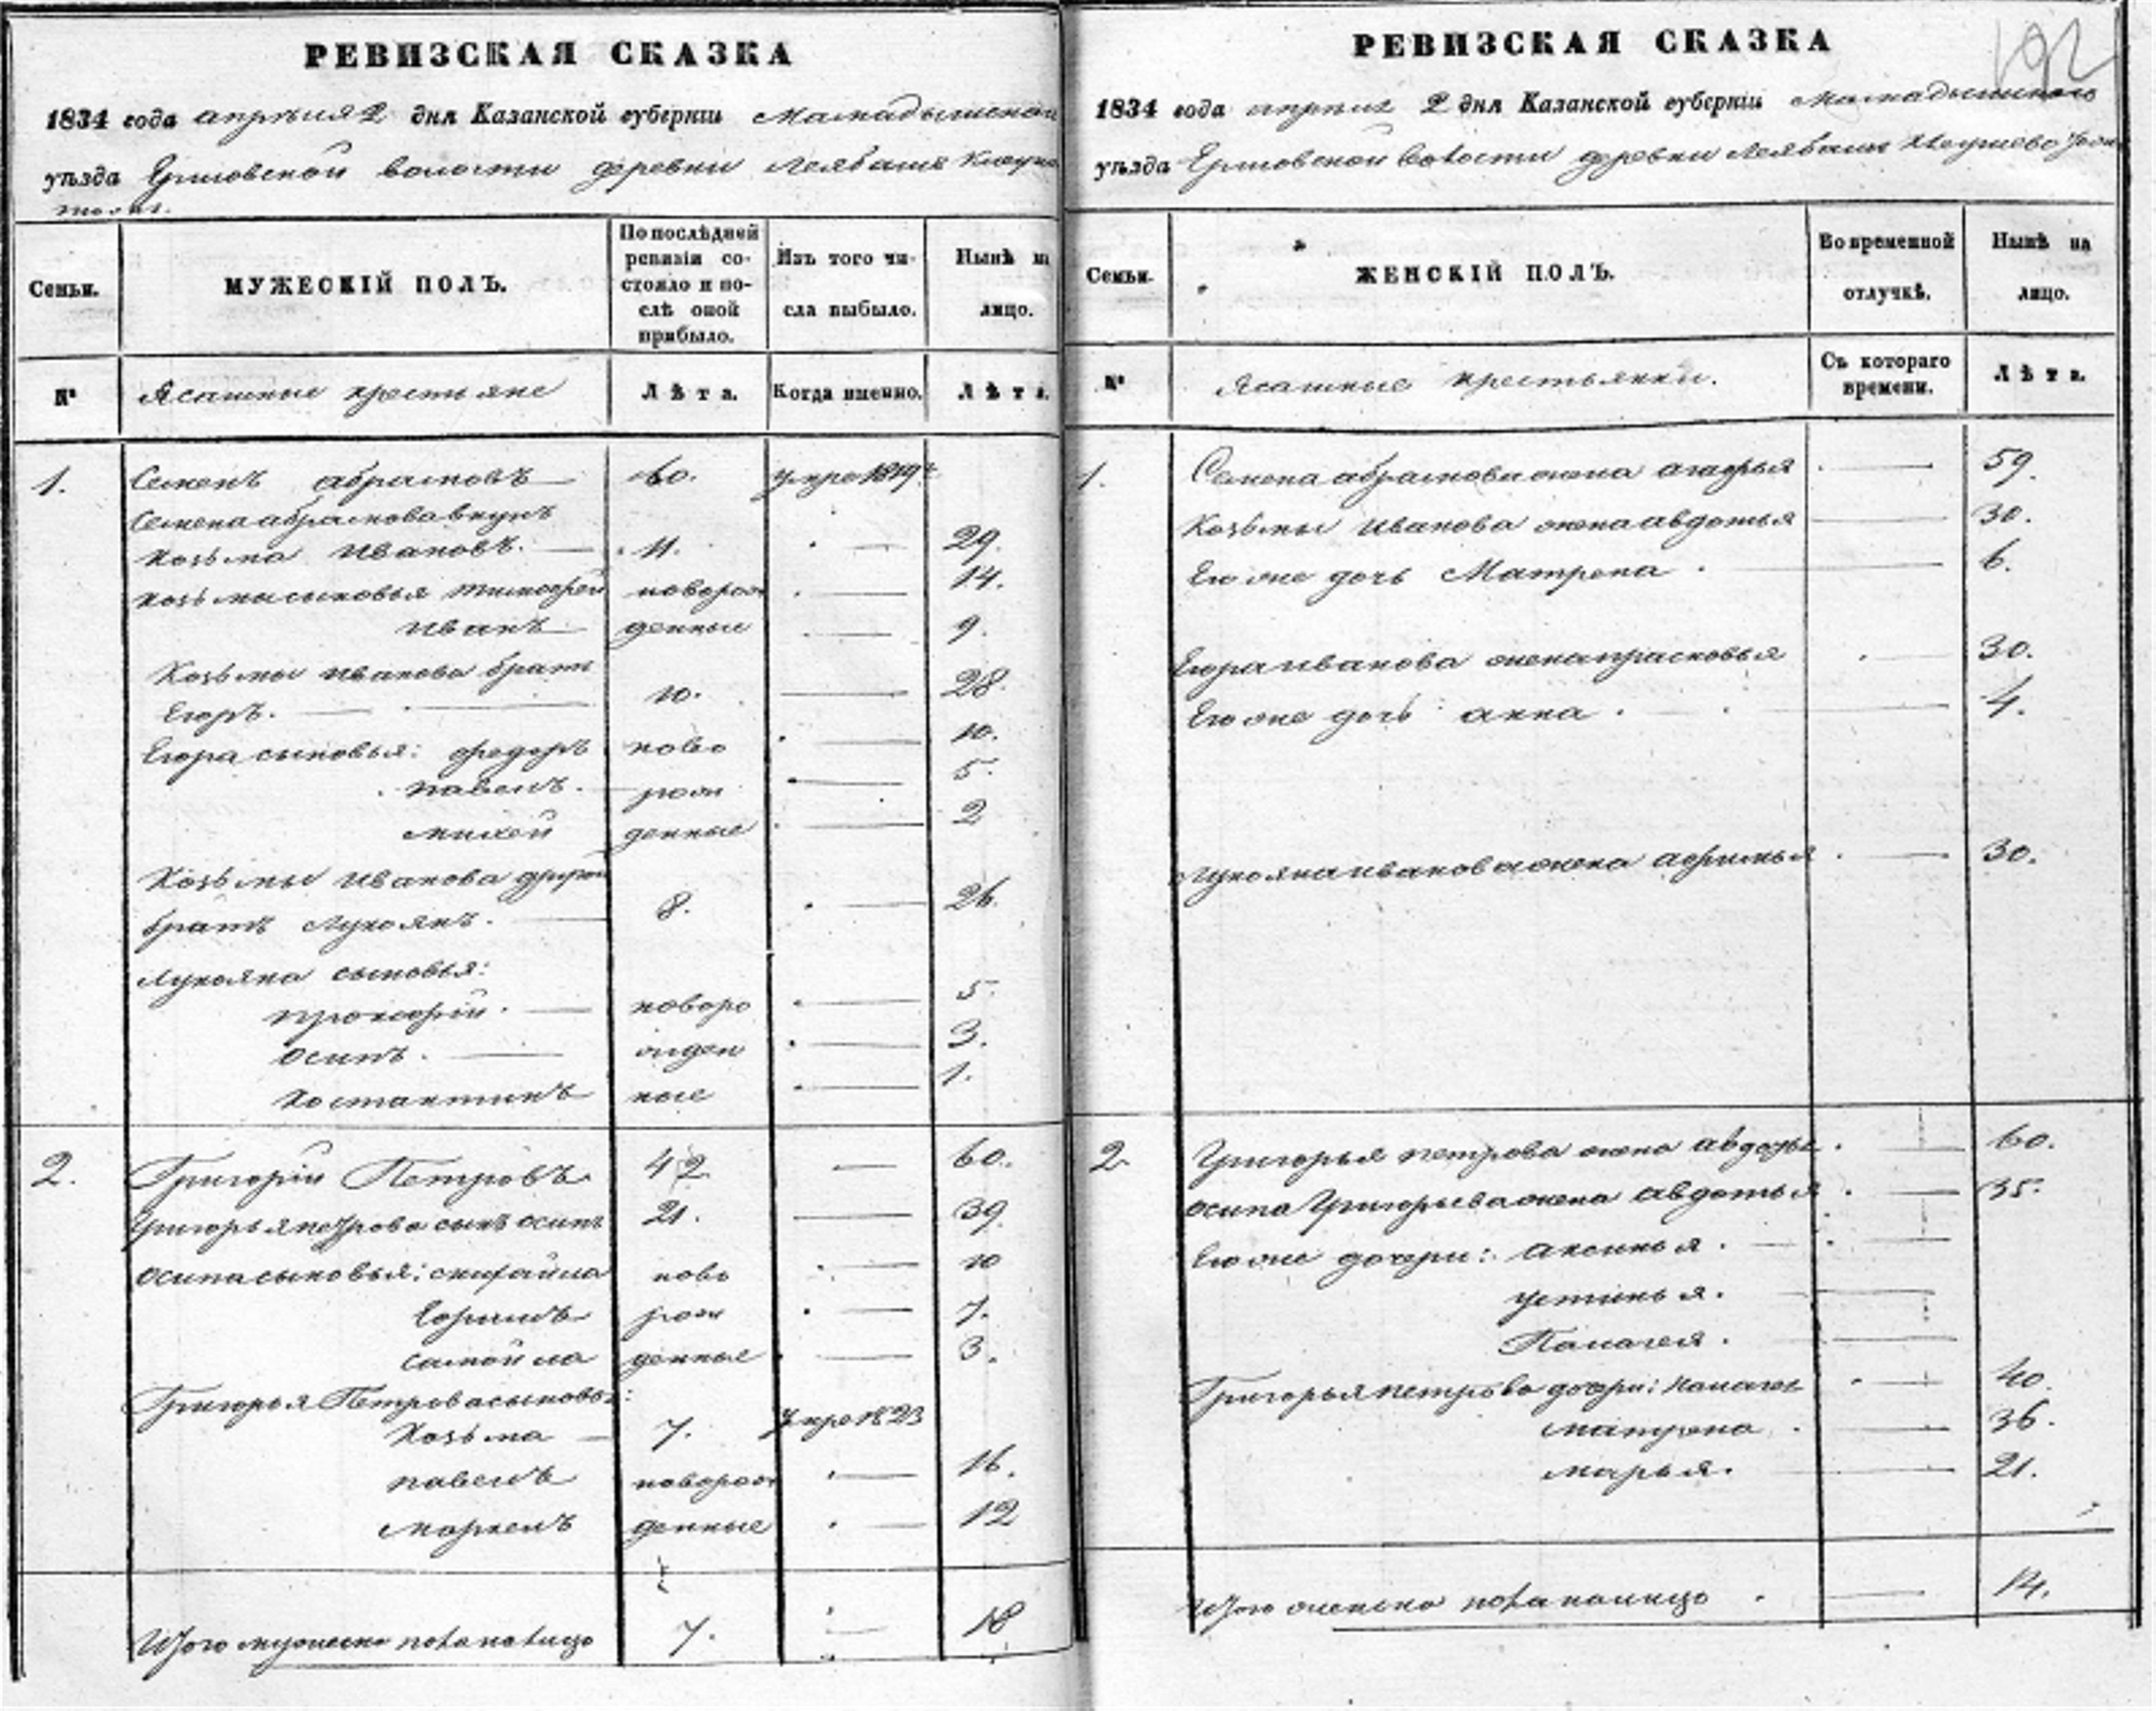 РЕВИЗСКАЯ СКАЗКА
1834 года апреля 2 дня Казанской губернiи Мамадышской
уѣзда Ершовской волости деревни Лелбаш Ключа
тожъ.
Семьи.
МУЖЕСКIЙ ПОЛЪ.
По послѣдней ревизiи состояло и послѣ оной прибыло.
Изъ того числа выбыло.
Нынѣ на лицо.
№
Ясашные крестьяне
Лѣта.
Когда именно.
Лѣта.
1. Семенъ абрамовъ 60. умре 1819
Семена абрамова внукъ
Козьма Ивановъ. 11. 29.
Козьма сыновья тимофей новорож 14.
Иванъ денные 9.
Козьмы Иванова братъ
Егоръ. 10. 28.
Егора сыновья: федоръ ново 10.
павелъ. рож 5.
михей денные 2
Козьмы Иванова другой
братъ Лукоянъ. 8. 26.
Лукояна сыновья:
прокофiй. новоро 5.
осипъ. жден 3.
Костантинъ ные 1.
2. Григорiй Петровъ. 42 60.
Григорья петрова сынъ осипъ 21. 39.
осипа сыновья: михайла ново 10
Ефимъ рож 7.
самойла денные 3.
Григорья Петрова сыновья:
Козьма 7. умре 1823
павелъ новорож 16.
маркелъ денные 12
Итого мужеска пола налицо 7. 18
РЕВИЗСКАЯ СКАЗКА
192
1834 года апреля 2 дня Казанской губернiи Мамадышского
уѣзда Ершовской волости деревни Лелбаш
Семьи.
ЖЕНСКIЙ ПОЛЪ.
Во временной отлучкѣ.
Нынѣ на лицо.
№
Ясашные крестьянки.
Съ котораго времени.
Лѣта.
1. Семена абрамова жена агафья 59.
Козьмы Иванова жена авдотья 30.
Его же дочь Матрена 6.
Егора иванова жена прасковья 30.
Его же дочь анна. 4.
Лукояна иванова жена афимья 30.
2. Григорья петрова жена авдотья 60.
осипа Григорьева жена авдотья 35.
Его же дочери: аксинья.
устинья.
Палагея.
Григорья петрова дочери: палагея 40.
матрена 36.
марья. 21.
Итого женска пола налицо 14.